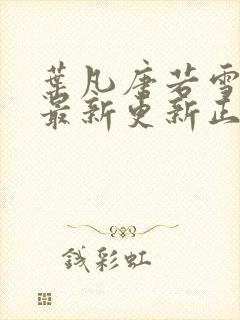 葉凡唐若雪
最新更新正
钱彩虹